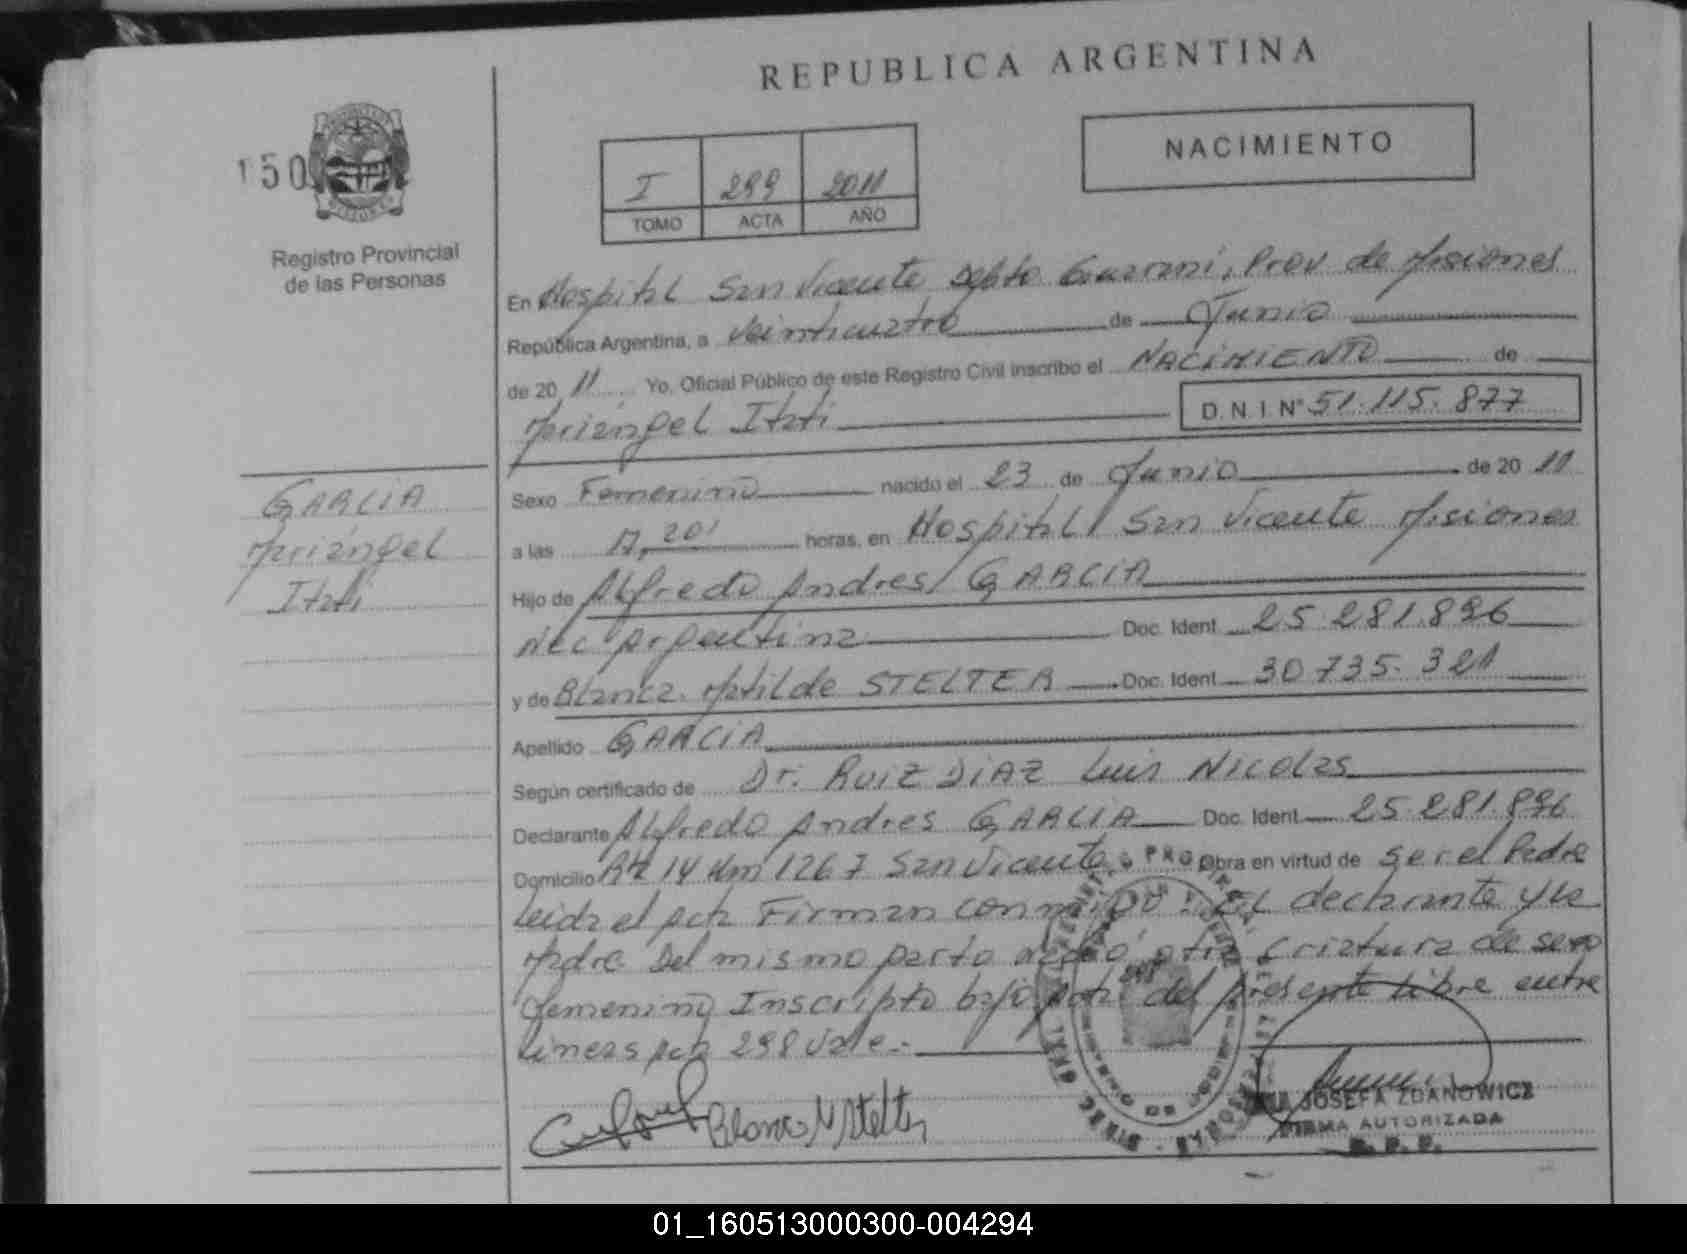 REPUBLICA ARGENTINA
150
NACIMIENTO
I 299 2011
TOMO ACTA AÑO
Registro Provincial
de las Personas
En Hospital San Vicente Depto Guarani, Prov de Misiones
República Argentina, a Veinticuatro de Junio
de 20 11 Yo, Oficial Público de este Registro Civil inscribo el NACIMIENTO de
Mariángel Itati D.N.I. Nº 51.115.877
GARCIA
Mariángel
Itati
Sexo Femenino nacido el 23 de Junio de 20 11
a las 20' horas, en Hospital San Vicente Misiones
Hijo de Alfredo Andres GARCIA
Nac Argentina Doc. Ident. 25.281.896
y de Blanca Matilde STELTER Doc. Ident. 30.735.321
Apellido GARCIA
Según certificado de Dr. RUIZ DIAZ Luis Nicolas
Declarante Alfredo Andres GARCIA Doc. Ident. 25.281.896
Domicilio Rta 14 Km 1267 San Vicente Obra en virtud de ser el Padre
Leida el acta Firman conmigo: El declarante y la
Madre Del mismo parto nació otra criatura de sexo
femenino Inscripto bajo acta del presente libro entre
lineas acta 298 vale.-
Blanca M Stelter
JOSEFA ZDANOWICZ
FIRMA AUTORIZADA
R. P. P.
01_160513000300-004294